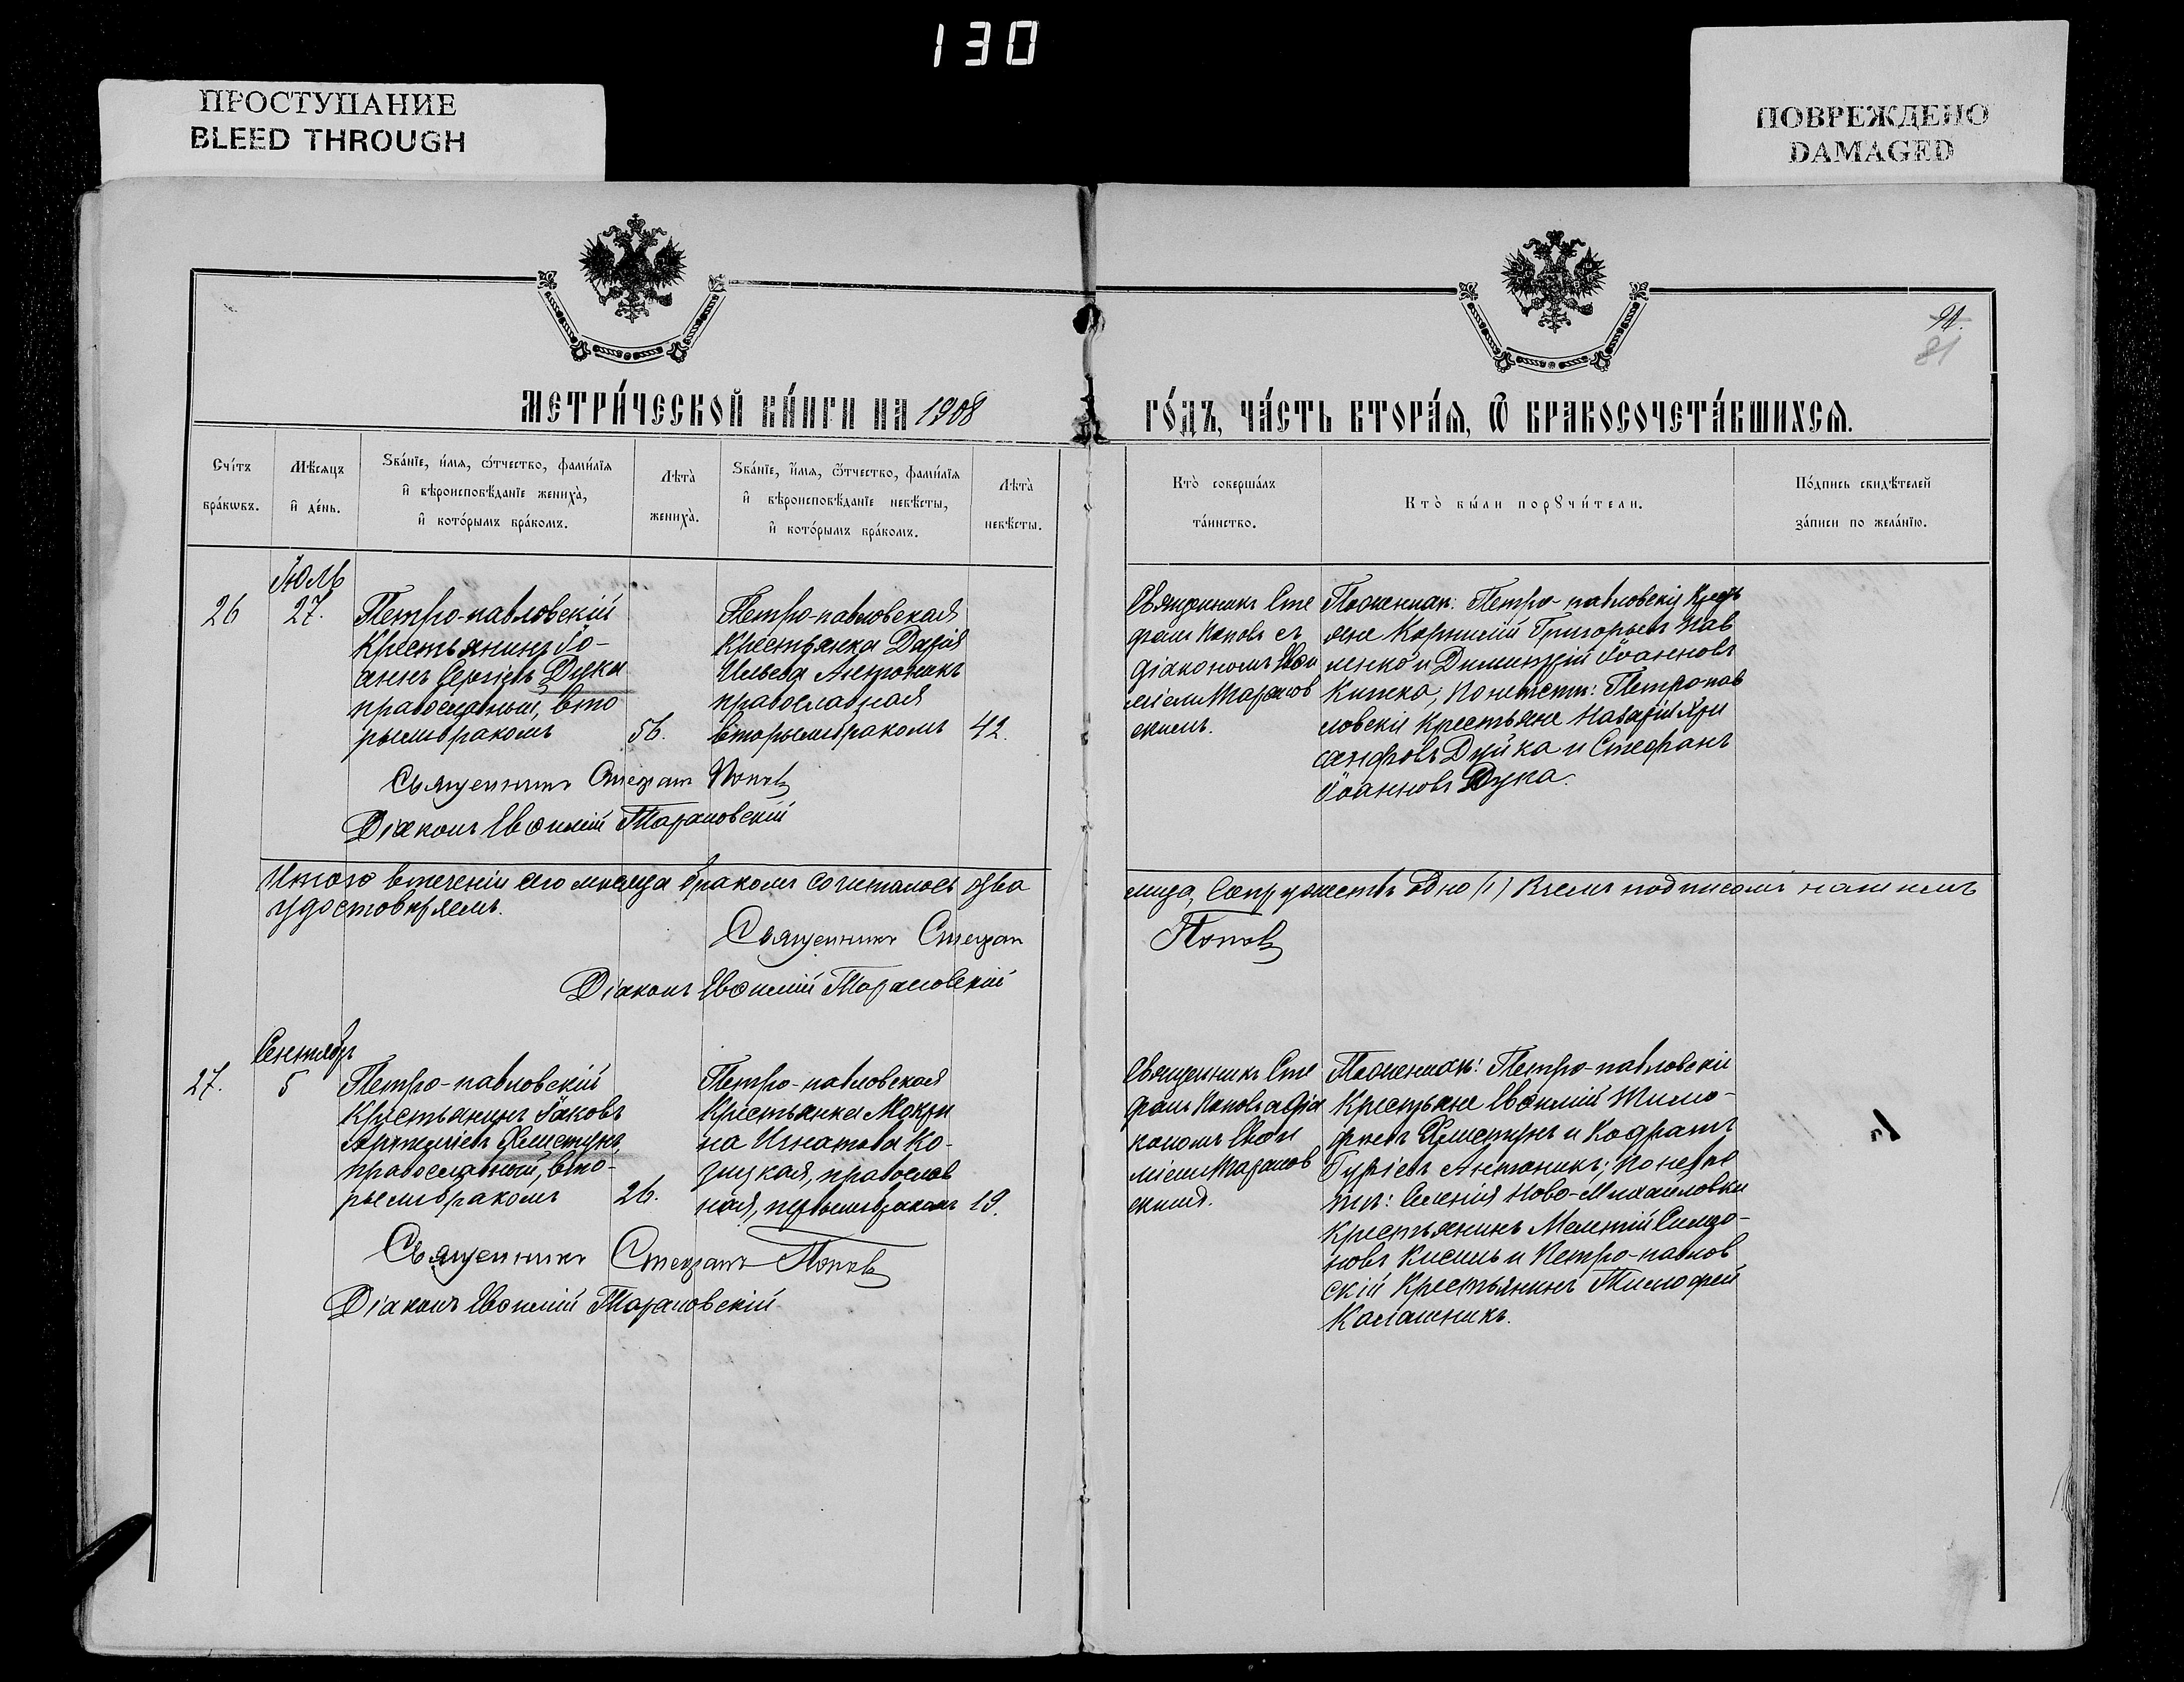 130
ПРОСТУПАНИЕ
BLEED THROUGH
ПОВРЕЖДЕНО
DAMAGED
91.
81
МЕТРИ́ЧЕСКОЙ КНИ́ГИ НА 1908
ГО́ДЪ, ЧА́СТЬ ВТОРА́Я, Ѿ БРАКОСОЧЕТА́ВШИХСЯ.
Сче́тъ
бра́кѡвъ.
Мѣ́сяцъ
и҆ де́нь.
Зва́нїе, и҆́мя, ѻ҆́тчество, фами́лїя
и҆ вѣроисповѣ́данїе жениха̀,
и҆ кото́рымъ бра́комъ.
Лѣта̀
жениха̀.
Зва́нїе, и҆́мя, ѻ҆́тчество, фами́лїя
и҆ вѣроисповѣ́данїе невѣ́сты,
и҆ кото́рымъ бра́комъ.
Лѣта̀
невѣ́сты.
Кто̀ соверша́лъ
та́инство.
Кто̀ бы́ли порꙋчи́тели.
По́дпись свидѣ́телей
за́писи по жела́нїю.
Іюль
26
27.
Петро-павловскій
Крестьянинъ Іо-
аннъ Сергіевъ Дука
православный, вто
рымъ бракомъ
56.
Петро-павловская
Крестьянка Дарія
Ильева Антоникъ
православная
вторымъ бракомъ
42.
Священникъ Сте
фанъ Поповъ съ
діакономъ Евѳи
міемъ Тарапов
скимъ.
По женихѣ: Петро-павловскіе Кресть
яне Корнилій Григорьевъ Пав
ленко и Димитрій Іоанновъ
Кишка, по невѣстѣ: Петро-пав
ловскіе Крестьяне Назарій Хри
санфовъ Дуйка и Стефанъ
Іоанновъ Дука.
Священникъ Стефанъ Поповъ
Діаконъ Евѳимій Тарановскій
Итого въ теченіи сего мѣсяца бракомъ сочиталось два
лица, Супружествъ одно (1) въ чемъ подписомъ нашимъ
удостовѣряемъ.
Священникъ Стефан
Поповъ
Діаконъ Евѳимій Тарановскій
Сентябрь
27.
5
Петро-павловскій
Крестьянинъ Іаковъ
православный, вто-
рымъ бракомъ
26.
Петро-павловская
Крестьянка Мокри
на Игнатова Ко-
зицкая, православ
ная, первымъ бракомъ
19.
Священникъ Сте
фанъ Поповъ съ діа
кономъ Евѳи
міемъ Таранов
скимъ.
По женихѣ: Петро-павловскіе
Крестьяне Евѳимій Тимо-
фѣевъ и Кодратъ
Гуріевъ Антоникъ; по невѣс
тѣ: Селенія Ново-Михайловки
Крестьянинъ Мелетій Симео-
новъ Кисель и Петро-павлов
скій Крестьянинъ Тимофей
Калашникъ.
Священникъ Стефанъ Поповъ
Діаконъ Евѳимій Тарановскій